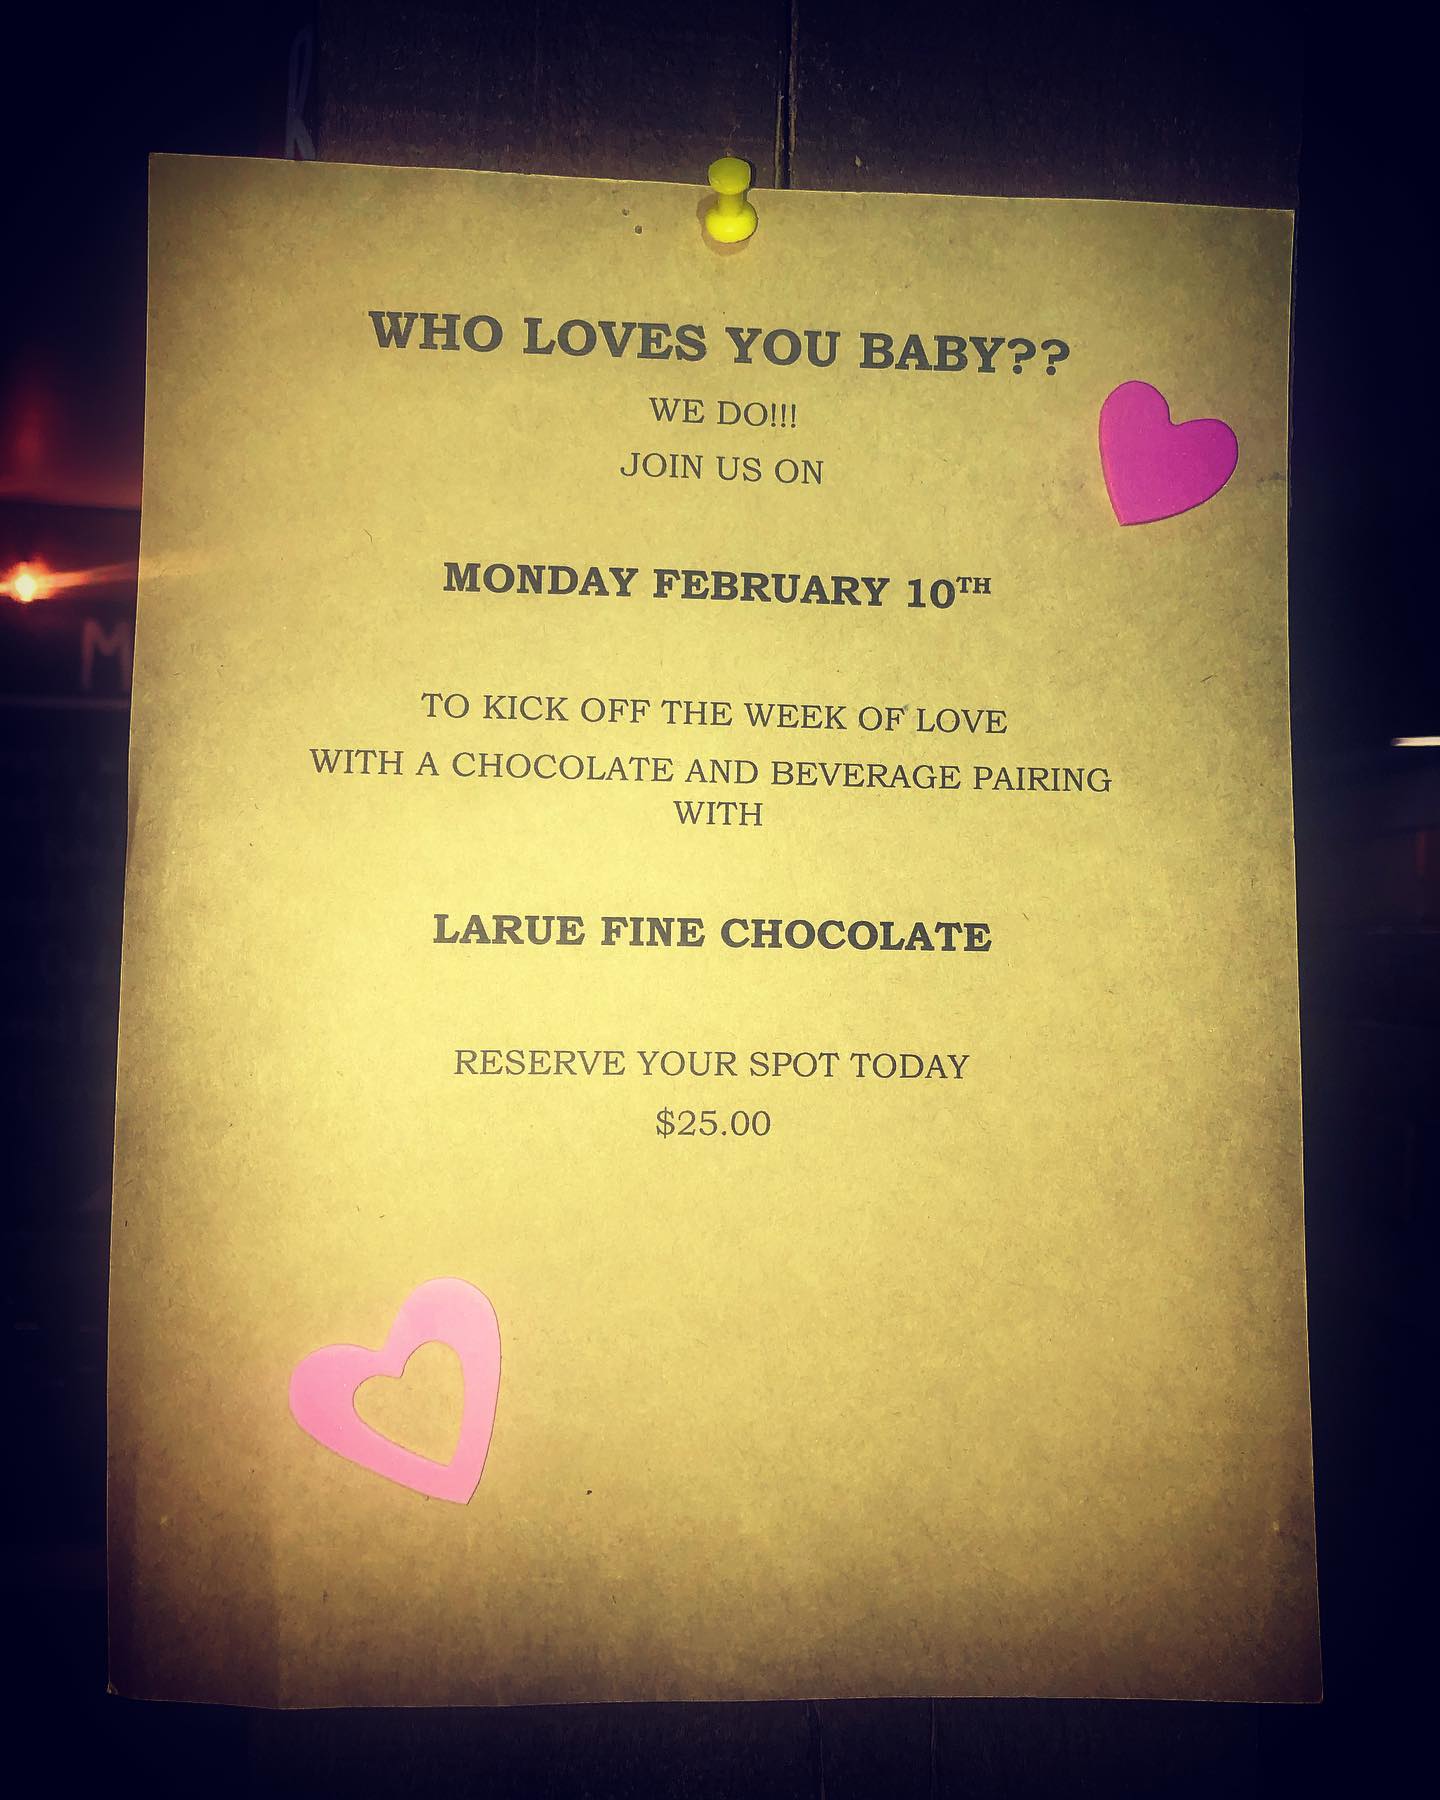 WHO LOVES YOU BABY??
WE DO!!!
JOIN US ON
MONDAY FEBRUARY 10TH
TO KICK OFF THE WEEK OF LOVE
WITH A CHOCOLATE AND BEVERAGE PAIRING
WITH
LARUE FINE CHOCOLATE
RESERVE YOUR SPOT TODAY
$25.00